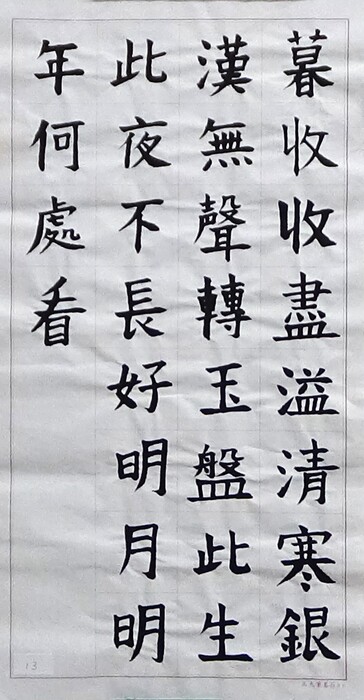 暮收收盡溢清寒銀
漢無聲轉玉盤此生
此夜不長好明月明
年何處看
13